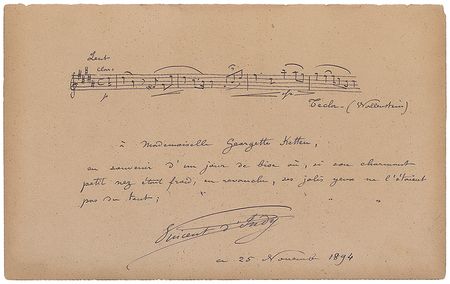 Lent
clar.
p
sfz
Tècla. (Wallenstein)
à Mademoiselle Georgette Ketten,
en souvenir d'un jour de bise où, si son charmant
petit nez était froid, en revanche, ses jolis yeux ne l'étaient
pas du tout; " " "
Vincent d'Indy
ce 25 Novembre 1894